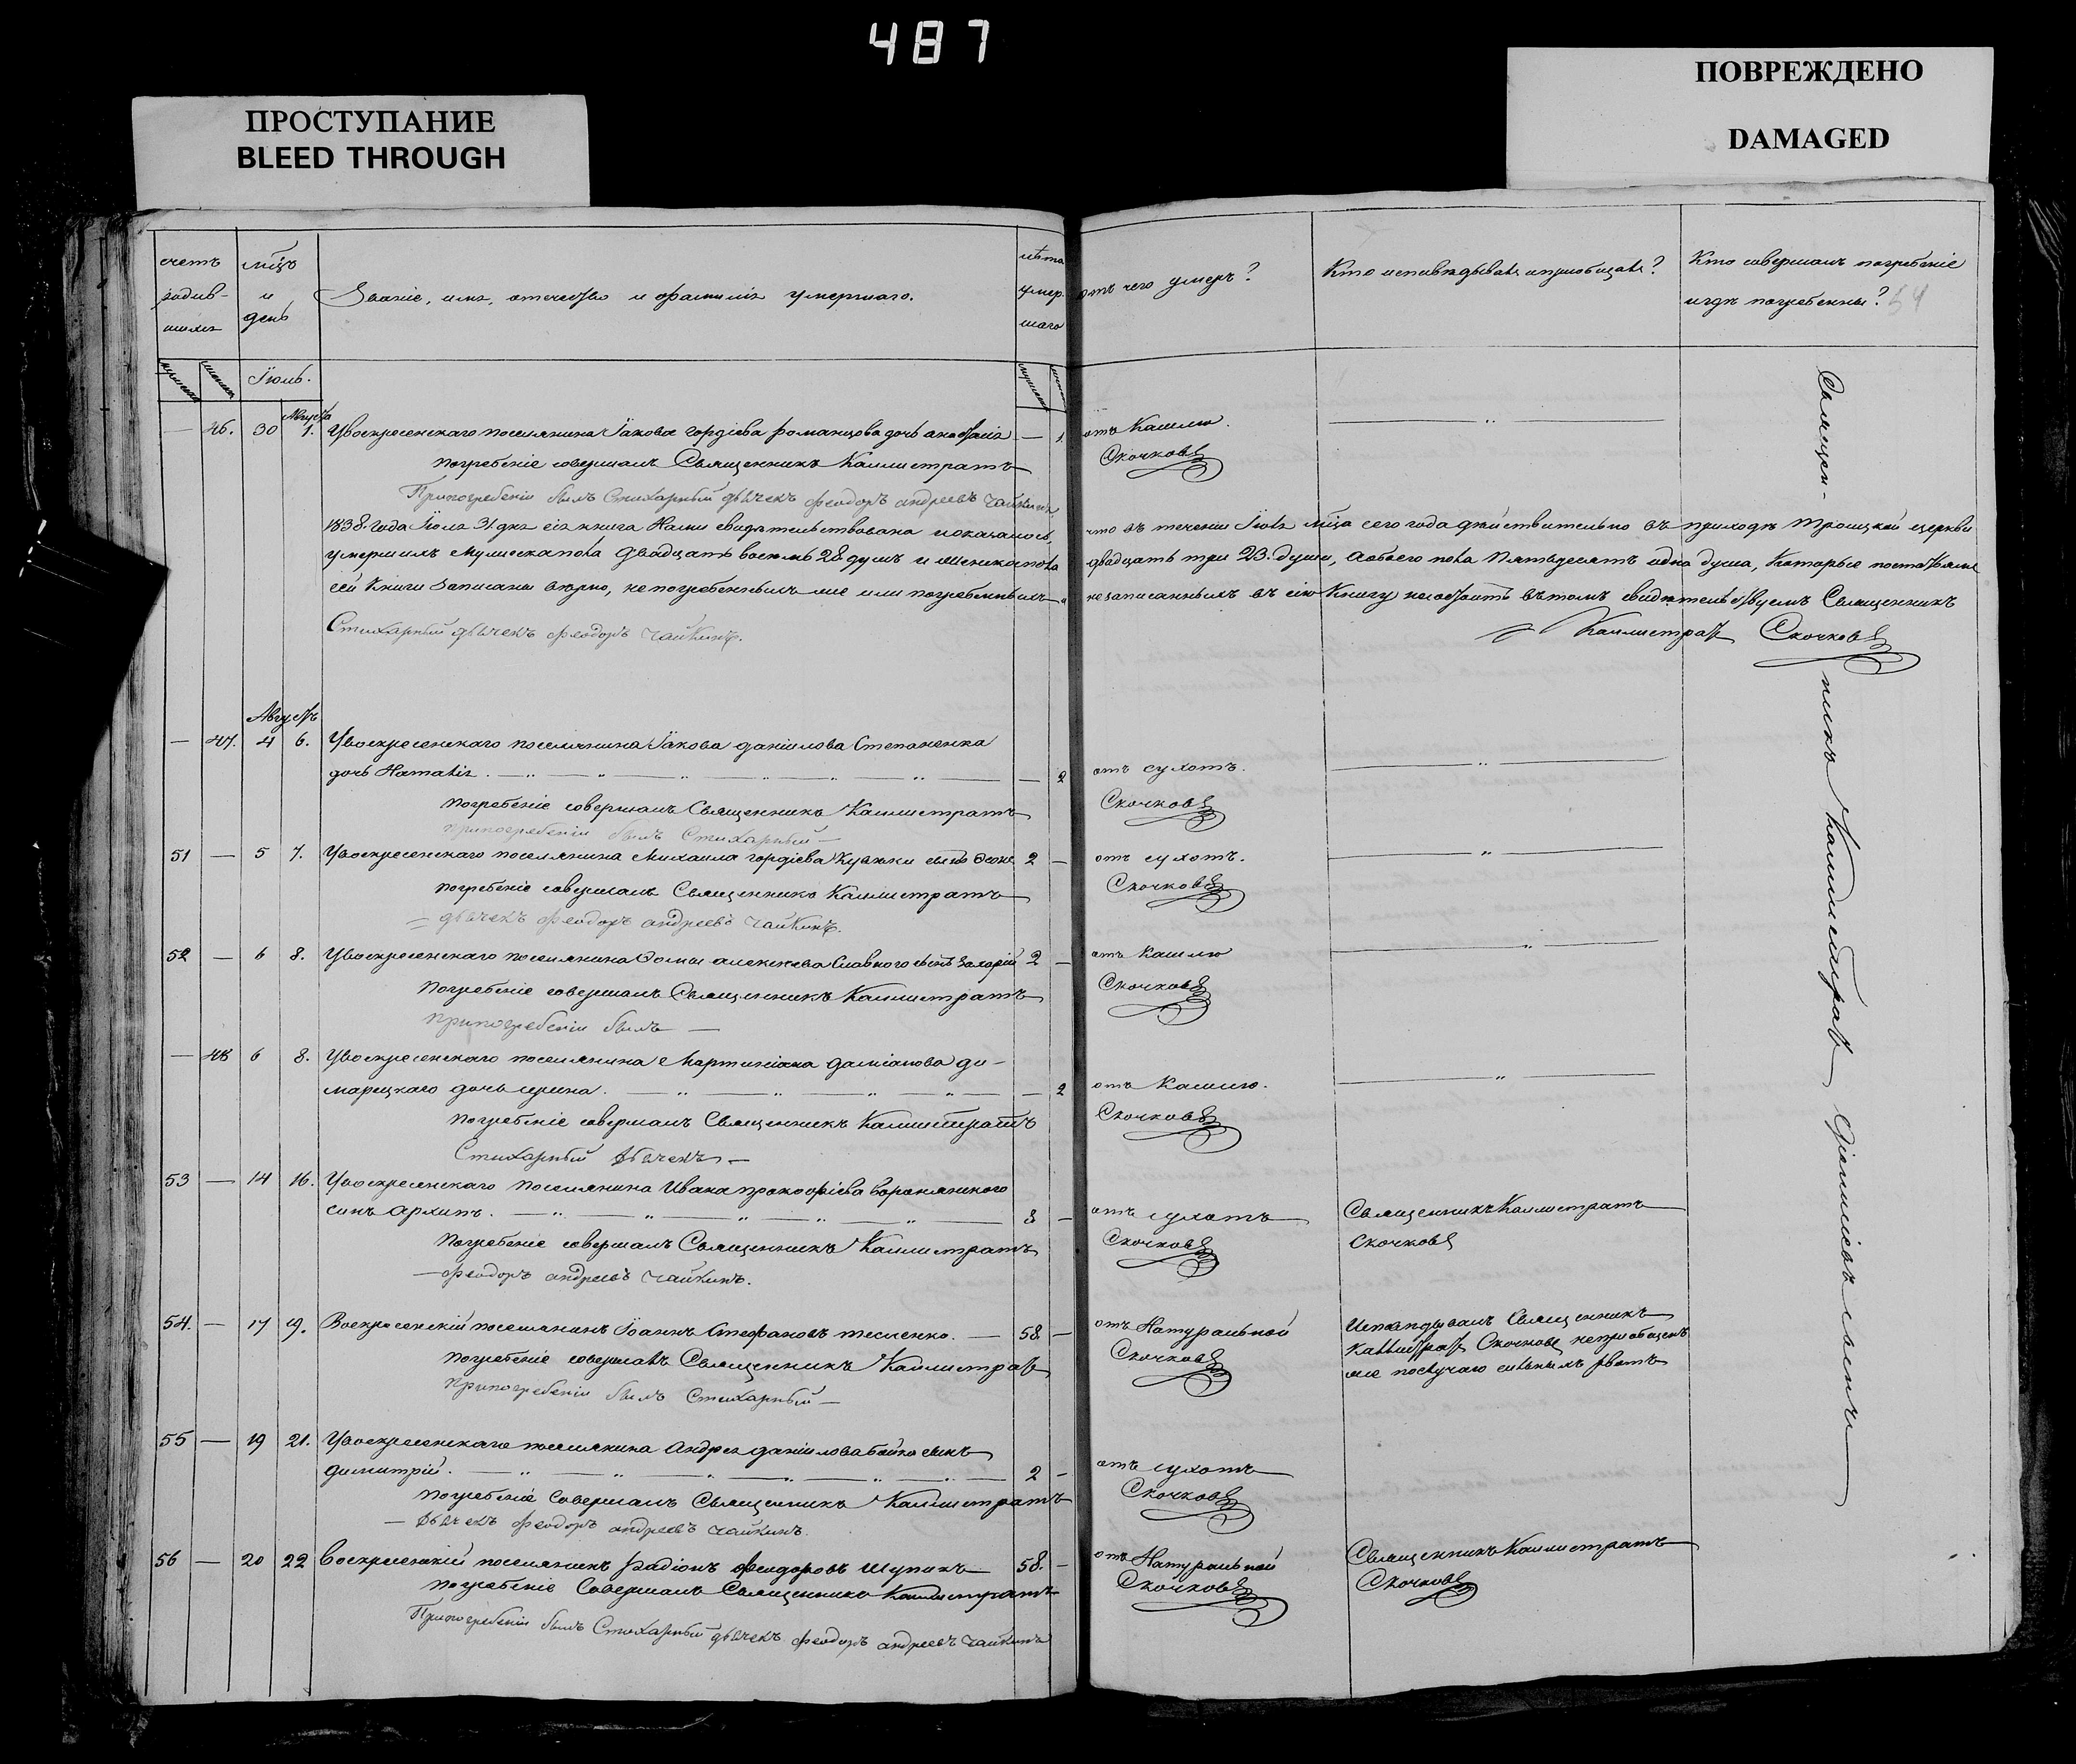 487
ПРОСТУПАНИЕ
BLEED THROUGH
ПОВРЕЖДЕНО
DAMAGED
счетъ
мѣсяцъ
и
день
Званіе, имя, отечество и фамилія умершаго.
лѣта
умер
шаго
отъ чего умеръ?
Кто исповѣдывалъ и пріобщалъ?
Кто совершалъ погребеніе
и гдѣ погребены? 54
Іюль.
Августа
— 46. 30 1. Увоскресенскаго поселянина Іакова гордіева романцова дочь анастасія — 1. отъ Кашлю.
погребеніе совершалъ Священникъ Каллистратъ Скочковъ
Припогребеніи былъ Стихарный дьячекъ феодоръ андреевъ чайкинъ
1838. года Іюля 31. дня сія книга Нами свидѣтельствована и оказалось, что въ теченіи Іюля мѣсяца сего года дѣйствительно въ приходѣ троицкой церкви
умершихъ мужеска пола двадцать восемь 28 душъ и женска пола двадцать три 23. души, а обоего пола Пятьдесятъ одна душа, Которые по
сей Книги Записаны вѣрно, не погребенныхъ же или погребенныхъ и незаписанныхъ въ сію Книгу въ томъ свидѣтельствуемъ Священникъ
Каллистратъ Скочковъ
Стихарный дьячекъ феодоръ чайкинъ.
Августъ
— 47. 4 6. Увоскресенскаго поселянина Іакова даніилова Степаненка
дочь Наталія. — 2 отъ сухотъ.
погребеніе совершалъ Священникъ Каллистратъ Скочковъ
припогребеніи былъ Стихарный —
51 — 5 7. Увоскресенскаго поселянина Михаила гордіева сынъ 2 — отъ сухотъ.
погребеніе совершалъ Священникъ Каллистратъ Скочковъ
— дьячекъ феодоръ андреевъ чайкинъ.
52 — 6 8. Увоскресенскаго поселянина Ѳомы алексѣева Славного сынъ Захарій 2 — отъ Кашлю
погребеніе совершалъ Священникъ Каллистратъ Скочковъ
припогребеніи былъ —
— 48 6 8. Увоскресенскаго поселянина Мартиніана даміанова ди-
марецкаго дочь ирина. — 2 отъ Кашлю.
погребеніе совершалъ Священникъ Каллистратъ Скочковъ
Стихарный дьячекъ —
53 — 14 16. Увоскресенскаго поселянина Ивана прокофіева воронянского
сынъ архипъ. 8 — отъ сухотъ Священникъ Каллистратъ
погребеніе совершалъ Священникъ Каллистратъ Скочковъ Скочковъ
— феодоръ андреевъ чайкинъ.
54. — 17 19. Воскресенскій поселянинъ Іоаннъ Стефановъ тесленко. — 58 — отъ Натуральной Исповѣдывалъ Священникъ
погребеніе совершалъ Священникъ Каллистратъ Скочковъ Каллистратъ Скочковъ непріобщенъ
же послучаю сильныхъ рвотъ
припогребеніи былъ Стихарный —
55 — 19 21. Увоскресенскаго поселянина Андрея даніилова бойко сынъ
димитрій. 2 — отъ сухотъ
погребеніе Совершалъ Священникъ Каллистратъ Скочковъ
— дьячекъ феодоръ андреевъ чайкинъ.
56 — 20 22 Воскресенскій поселянинъ радіонъ феодоровъ Шупикъ — 58. — отъ Натуральной Священникъ Каллистратъ
погребеніе Совершалъ Священникъ Каллистратъ Скочковъ Скочковъ
Припогребеніи былъ Стихарный дьячекъ феодоръ андреевъ чайкинъ
Священ-никъ Каллистратъ Діонисіевъ сынъ